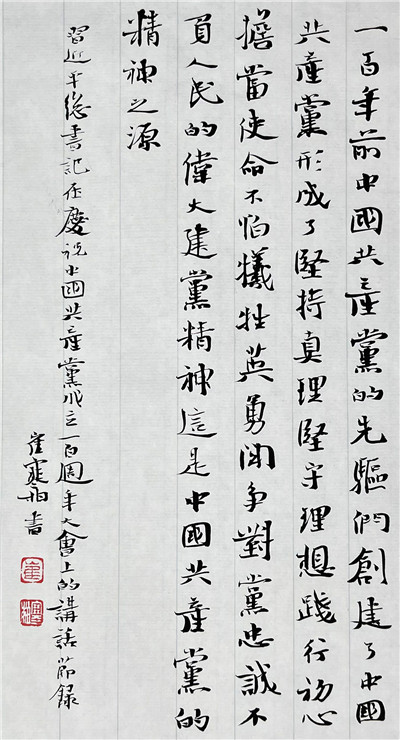 一百年前中國共產黨的先驅們創建了中國
共產黨形成了堅持真理堅守理想踐行初心
擔當使命不怕犧牲英勇鬥争對黨忠誠不
負人民的偉大建黨精神這是中國共產黨的
精神之源
習近平總書記在慶祝中國共產黨成立一百週年大會上的講話節錄
崔書